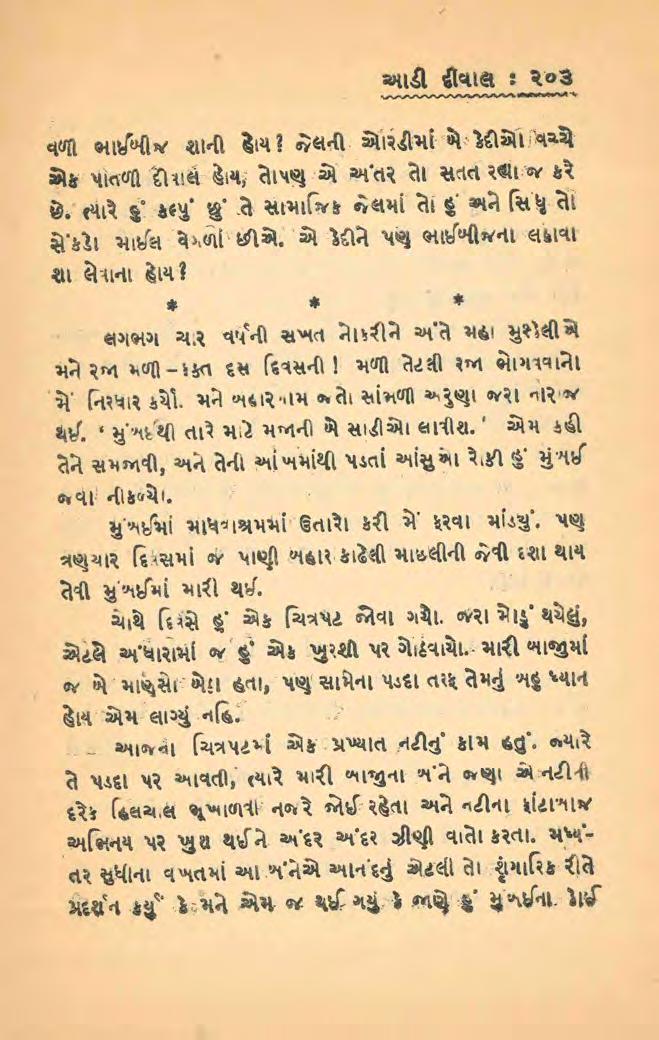 આડી દીવાલ : ૨૦૩
વળી ભાઈબીજ શાની હોય? જેલની ઓરડીમાં બે કેદીઓ વચ્ચે
એક પાતળી દીવાલ હોય, તોપણ એ અંતર તો સતત રહ્યા જ કરે
છે. ત્યારે હું કલ્પું છું તે સામાજિક જેલમાં તો હું અને સિંધુ તો
સેંકડો માઈલ વેગળાં છીએ. એ કેદીને પણ ભાઈબીજના લહાવા
શા લેવાના હોય?
* * *
લગભગ ચાર વર્ષની સખત નોકરીને અંતે મહા મુશ્કેલીએ
મને રજા મળી – ફક્ત દસ દિવસની! મળી તેટલી રજા ભોગવવાનો
મેં નિરધાર કર્યો. મને બહારગામ જતો સાંભળી અરુણા જરા નારાજ
થઈ. ‘મુંબઈથી તારે માટે મજાની બે સાડીઓ લાવીશ.’ એમ કહી
તેને સમજાવી, અને તેની આંખમાંથી પડતાં આંસુઓ રોકી હું મુંબઈ
જવા નીકળ્યો.
મુંબઈમાં માધવાશ્રમમાં ઉતારો કરી મેં ફરવા માંડ્યું. પણ
ત્રણચાર દિવસમાં જ પાણી બહાર કાઢેલી માછલીની જેવી દશા થાય
તેવી મુંબઈમાં મારી થઈ.
ચોથે દિવસે હું એક ચિત્રપટ જોવા ગયો. જરા મોડું થયેલું,
એટલે અંધારામાં જ હું એક ખુરશી પર ગોઠવાયો. મારી બાજુમાં
જ બે માણસો બેઠા હતા, પણ સામેના પડદા તરફ તેમનું બહુ ધ્યાન
હોય એમ લાગ્યું નહિ.
આજના ચિત્રપટમાં એક પ્રખ્યાત નટીનું કામ હતું. જ્યારે
તે પડદા પર આવતી, ત્યારે મારી બાજુના બંને જણા એ નટીની
દરેક હિલચાલ ભૂખાળવી નજરે જોઈ રહેતા અને નટીના ફાંટાબાજ
અભિનય પર ખુશ થઈને અંદર અંદર ઝીણી વાતો કરતા. મધ્યં-
તર સુધીના વખતમાં આ બંનેએ આનંદનું એટલી તો શૃંગારિક રીતે
પ્રદર્શન કર્યું કે મને એમ જ થઈ ગયું કે જાણે હું મુંબઈના કોઈ